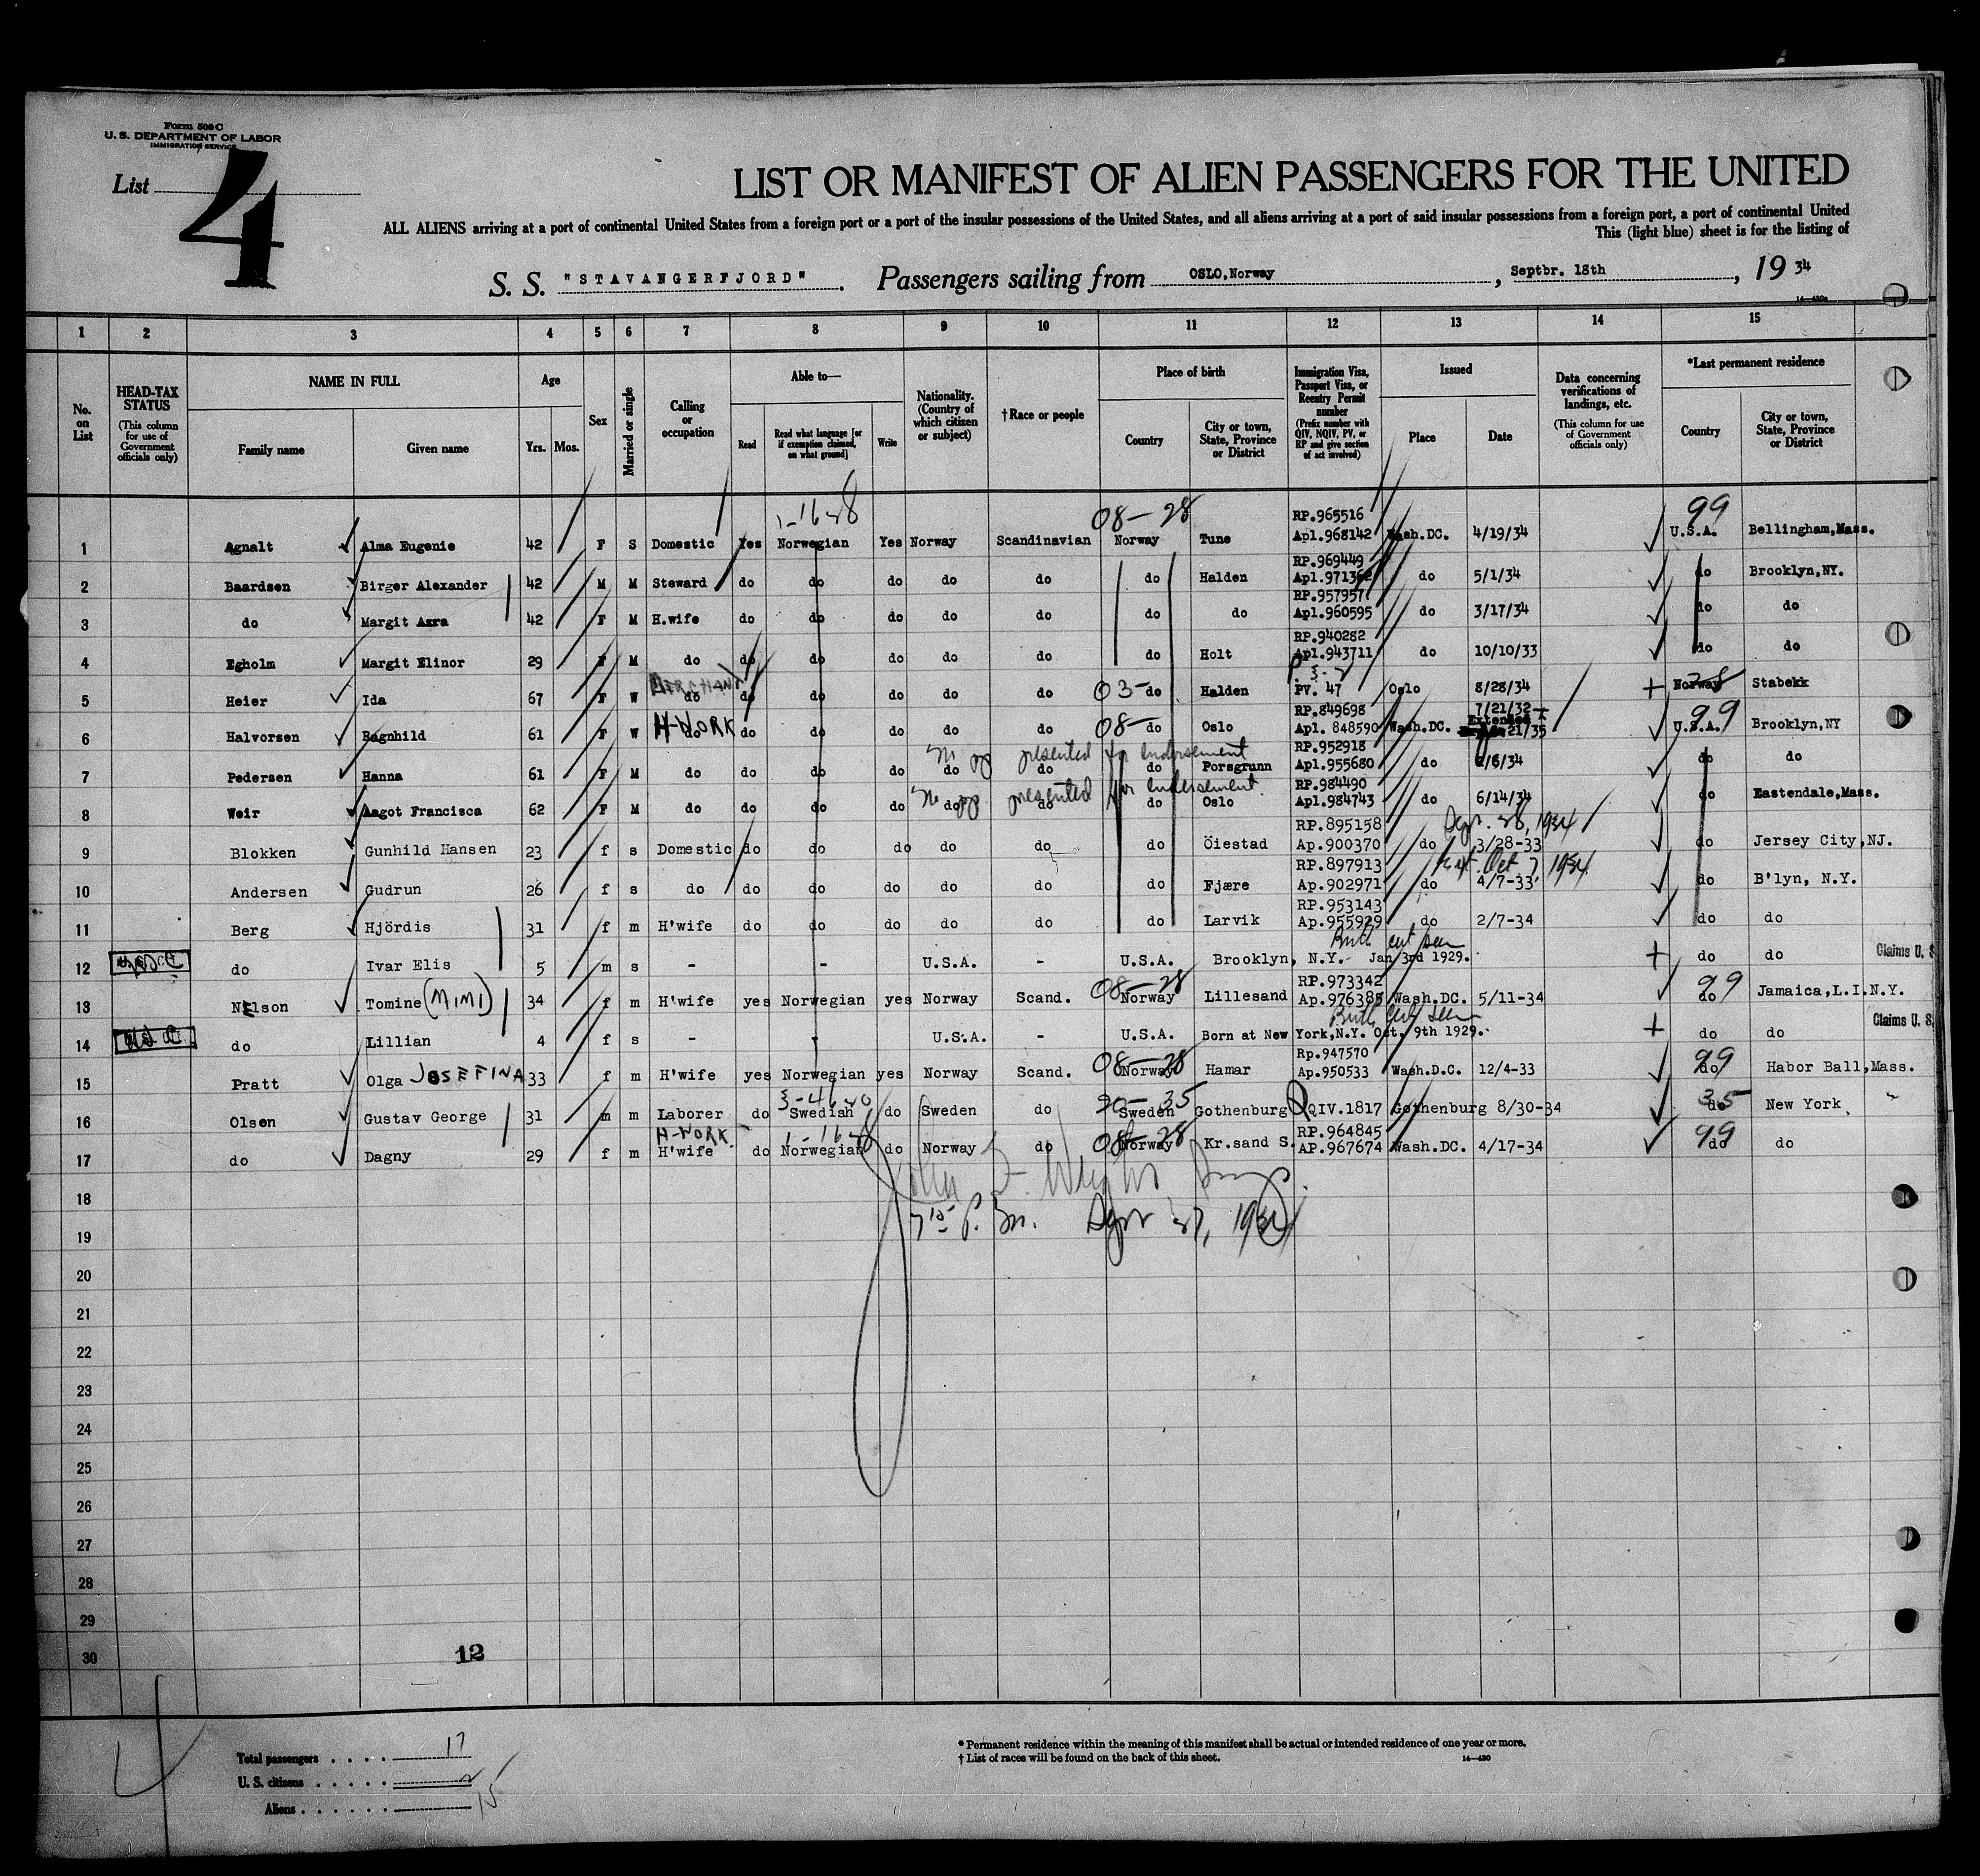 Form 500 C
U. S. DEPARTMENT OF LABOR
IMMIGRATION SERVICE
List 4
LIST OR MANIFEST OF ALIEN PASSENGERS FOR THE UNITED
ALL ALIENS arriving at a port of continental United States from a foreign port or a port of the insular possessions of the United States, and all aliens arriving at a port of said insular possessions from a foreign port, a port of continental United
This (light blue) sheet is for the listing of
S. S. "STAVANGERFJORD". Passengers sailing from OSLO, Norway, Septbr. 18th, 19 34
1 2 3 4 5 6 7 8 9 10 11 12 13 14 15
No. on List
HEAD-TAX STATUS
(This column for use of Government officials only)
NAME IN FULL
Family name
Given name
Age
Yrs. Mos.
Sex
Married or single
Calling or occupation
Able to—
Read
Read what language [or if exemption claimed, on what ground]
Write
Nationality. (Country of which citizen or subject)
† Race or people
Place of birth
Country
City or town, State, Province or District
Immigration Visa, Passport Visa, or Reentry Permit number
(Prefix number with QIV, NQIV, PV, or RP and give section of act involved)
Issued
Place
Date
Data concerning verifications of landings, etc.
(This column for use of Government officials only)
*Last permanent residence
Country
City or town, State, Province or District
1-16-28 08-28 RP.965516 99
1 Agnalt Alma Eugenie 42 F S Domestic Yes Norwegian Yes Norway Scandinavian Norway Tune Apl.968142 Wash.DC. 4/19/34 U.S.A. Bellingham,Mass.
RP.969449
2 Baardsen Birger Alexander 42 M M Steward do do do do do do Halden Apl.971362 do 5/1/34 do Brooklyn,NY.
RP.957957
3 do Margit Azra 42 F M H.wife do do do do do do do Apl.960595 do 3/17/34 do do
RP.940282
4 Egholm Margit Elinor 29 F M do do do do do do do Holt Apl.943711 do 10/10/33 do do
MERCHANT
5 Heier Ida 67 F W do do do do do do 03- do Halden PV. 47 Oslo 8/28/34 Norway Stabekk
H-WORK RP.849698 7/21/32 Extended 99
6 Halvorsen Ragnhild 61 F W do do do do do do 08- do Oslo Apl. 848590 Wash.DC. 21/35 U.S.A. Brooklyn,NY
No pp presented for endorsement RP.952918
7 Pedersen Hanna 61 F M do do do do do do do Porsgrunn Apl.955680 do 2/6/34 do do
No pp presented for endorsement. RP.984490
8 Weir Aagot Francisca 62 F M do do do do do do do Oslo Apl.984743 do 6/14/34 do Eastendale,Mass.
RP.895158 Sept. 28, 1934
9 Blokken Gunhild Hansen 23 f s Domestic do do do do do do Öiestad Ap.900370 do 3/28-33 do Jersey City,NJ.
RP.897913 Ext. Oct 7 1934
10 Andersen Gudrun 26 f s do do do do do do do Fjære Ap.902971 do 4/7-33 do B'lyn, N.Y.
RP.953143
11 Berg Hjördis 31 f m H'wife do do do do do do Larvik Ap.955929 do 2/7-34 do do
Birth cert seen
12 do Ivar Elis 5 m s - - U.S.A. - U.S.A. Brooklyn, N.Y. Jan 3rd 1929. do do Claims U. S
08-28 RP.973342 99
13 Nelson Tomine (MIMI) 34 f m H'wife yes Norwegian yes Norway Scand. Norway Lillesand Ap.976385 Wash.DC. 5/11-34 do Jamaica,L.I.N.Y.
Birth cert seen
14 do Lillian 4 f s - - U.S.A. - U.S.A. Born at New York,N.Y. Oct. 9th 1929. do do Claims U. S.
08-28 Rp.947570 99
15 Pratt Olga JOSEFINA 33 f m H'wife yes Norwegian yes Norway Scand. Norway Hamar Ap.950533 Wash.D.C. 12/4-33 do Habor Ball,Mass.
35
16 Olsen Gustav George 31 m m Laborer do Swedish do Sweden do Sweden Gothenburg QIV.1817 Gothenburg 8/30-34 do New York
H-WORK. 1-16-28 08-28 RP.964845 99
17 do Dagny 29 f m H'wife do Norwegian do Norway do Norway Kr.sand S. AP.967674 Wash.DC. 4/17-34 do do
18
19
20
21
22
23
24
25
26
27
28
29
30
12
Total passengers . . . . 17
U. S. citizens . . . . . 2
Aliens . . . . . . 15
* Permanent residence within the meaning of this manifest shall be actual or intended residence of one year or more.
† List of races will be found on the back of this sheet.
14—430